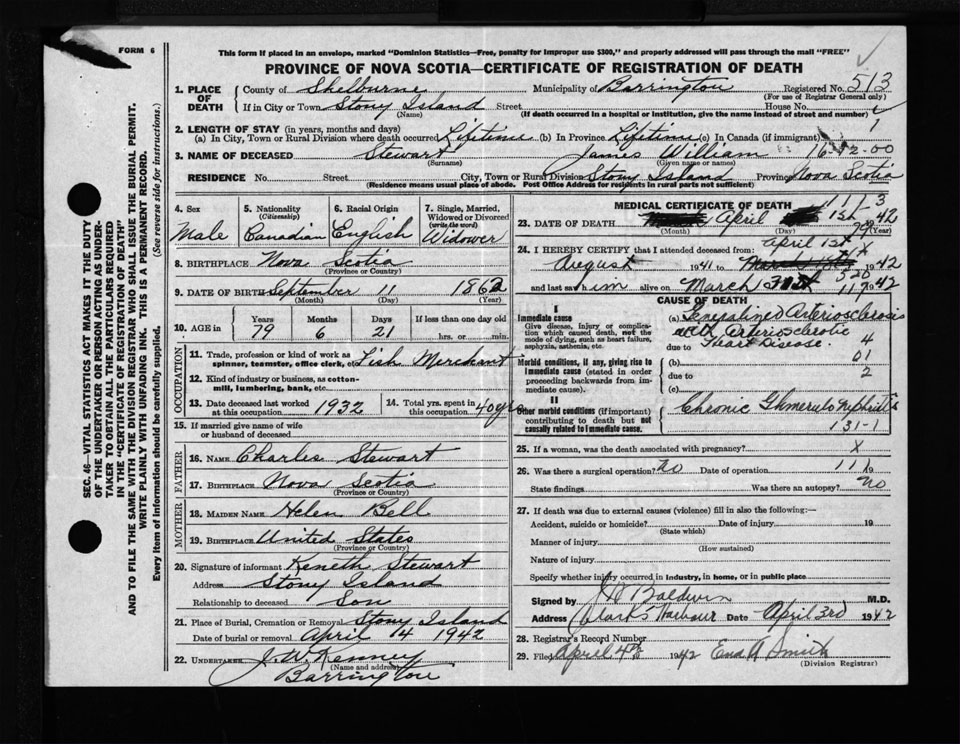 FORM 6
This form if placed in an envelope, marked "Dominion Statistics—Free, penalty for improper use $300," and properly addressed will pass through the mail "FREE"
PROVINCE OF NOVA SCOTIA—CERTIFICATE OF REGISTRATION OF DEATH
1. PLACE OF DEATH County of Shelburne Municipality of Barrington Registered No. 513
(For use of Registrar General only)
If in City or Town Stony Island Street House No.
(Name) (If death occurred in a hospital or institution, give the name instead of street and number)
2. LENGTH OF STAY (in years, months and days)
(a) In City, Town or Rural Division where death occurred Lifetime (b) In Province Lifetime (c) In Canada (if immigrant)
3. NAME OF DECEASED Stewart James William 16-12-00
(Surname) (Given name or names)
RESIDENCE No. Street City, Town or Rural Division Stony Island Province Nova Scotia
(Residence means usual place of abode. Post Office Address for residents in rural parts not sufficient)
4. Sex Male
5. Nationality (Citizenship) Canadian
6. Racial Origin English
7. Single, Married, Widowed or Divorced (write the word) Widower
8. BIRTHPLACE Nova Scotia
(Province or Country)
9. DATE OF BIRTH September 11 1862
(Month) (Day) (Year)
10. AGE in Years Months Days If less than one day old
79 6 21 hrs. or min.
OCCUPATION
11. Trade, profession or kind of work as spinner, teamster, office clerk, etc. Fish Merchant
12. Kind of industry or business, as cotton-mill, lumbering, bank, etc.
13. Date deceased last worked at this occupation 1932
14. Total yrs. spent in this occupation 40 yrs
15. If married give name of wife or husband of deceased
FATHER
16. NAME Charles Stewart
17. BIRTHPLACE Nova Scotia
(Province or Country)
MOTHER
18. MAIDEN NAME Helen Bell
19. BIRTHPLACE United States
(Province or Country)
20. Signature of informant Keneth Stewart
Address Stony Island
Relationship to deceased Son
21. Place of Burial, Cremation or Removal Stony Island
Date of burial or removal April 14 1942
22. UNDERTAKER J. W. Kenney
(Name and address)
Barrington
MEDICAL CERTIFICATE OF DEATH 111-3
23. DATE OF DEATH April 1st 1942
(Month) (Day) (Year)
79
24. I HEREBY CERTIFY that I attended deceased from:
April 1st
August 1941 to 1942
and last saw him alive on March 31st 1942
CAUSE OF DEATH
I
Immediate cause
Give disease, injury or complication which caused death, not the mode of dying, such as heart failure, asphyxia, asthenia, etc.
(a) Generalized Arteriosclerosis
with Arteriosclerotic
due to Heart Disease. 4
Morbid conditions, if any, giving rise to immediate cause (stated in order proceeding backwards from immediate cause).
(b) 01
due to 2
(c)
II
Other morbid conditions (if important) contributing to death but not causally related to immediate cause.
Chronic Glomerulo Nephritis
131-1
25. If a woman, was the death associated with pregnancy? X
26. Was there a surgical operation? no Date of operation 19
State findings Was there an autopsy? no
27. If death was due to external causes (violence) fill in also the following:—
Accident, suicide or homicide? Date of injury 19
(State which)
Manner of injury
(How sustained)
Nature of injury
Specify whether injury occurred in industry, in home, or in public place
Signed by Baldwin M.D.
Address Clark's Harbour Date April 3rd 1942
28. Registrar's Record Number
29. Filed April 4th 1942 Ena A Smith
(Division Registrar)
SEC. 46—VITAL STATISTICS ACT MAKES IT THE DUTY
OF THE UNDERTAKER OR PERSON ACTING AS UNDER-
TAKER TO OBTAIN ALL THE PARTICULARS REQUIRED
IN THE "CERTIFICATE OF REGISTRATION OF DEATH"
AND TO FILE THE SAME WITH THE DIVISION REGISTRAR WHO SHALL ISSUE THE BURIAL PERMIT.
WRITE PLAINLY WITH UNFADING INK. THIS IS A PERMANENT RECORD.
Every item of information should be carefully supplied. (See reverse side for instructions.)